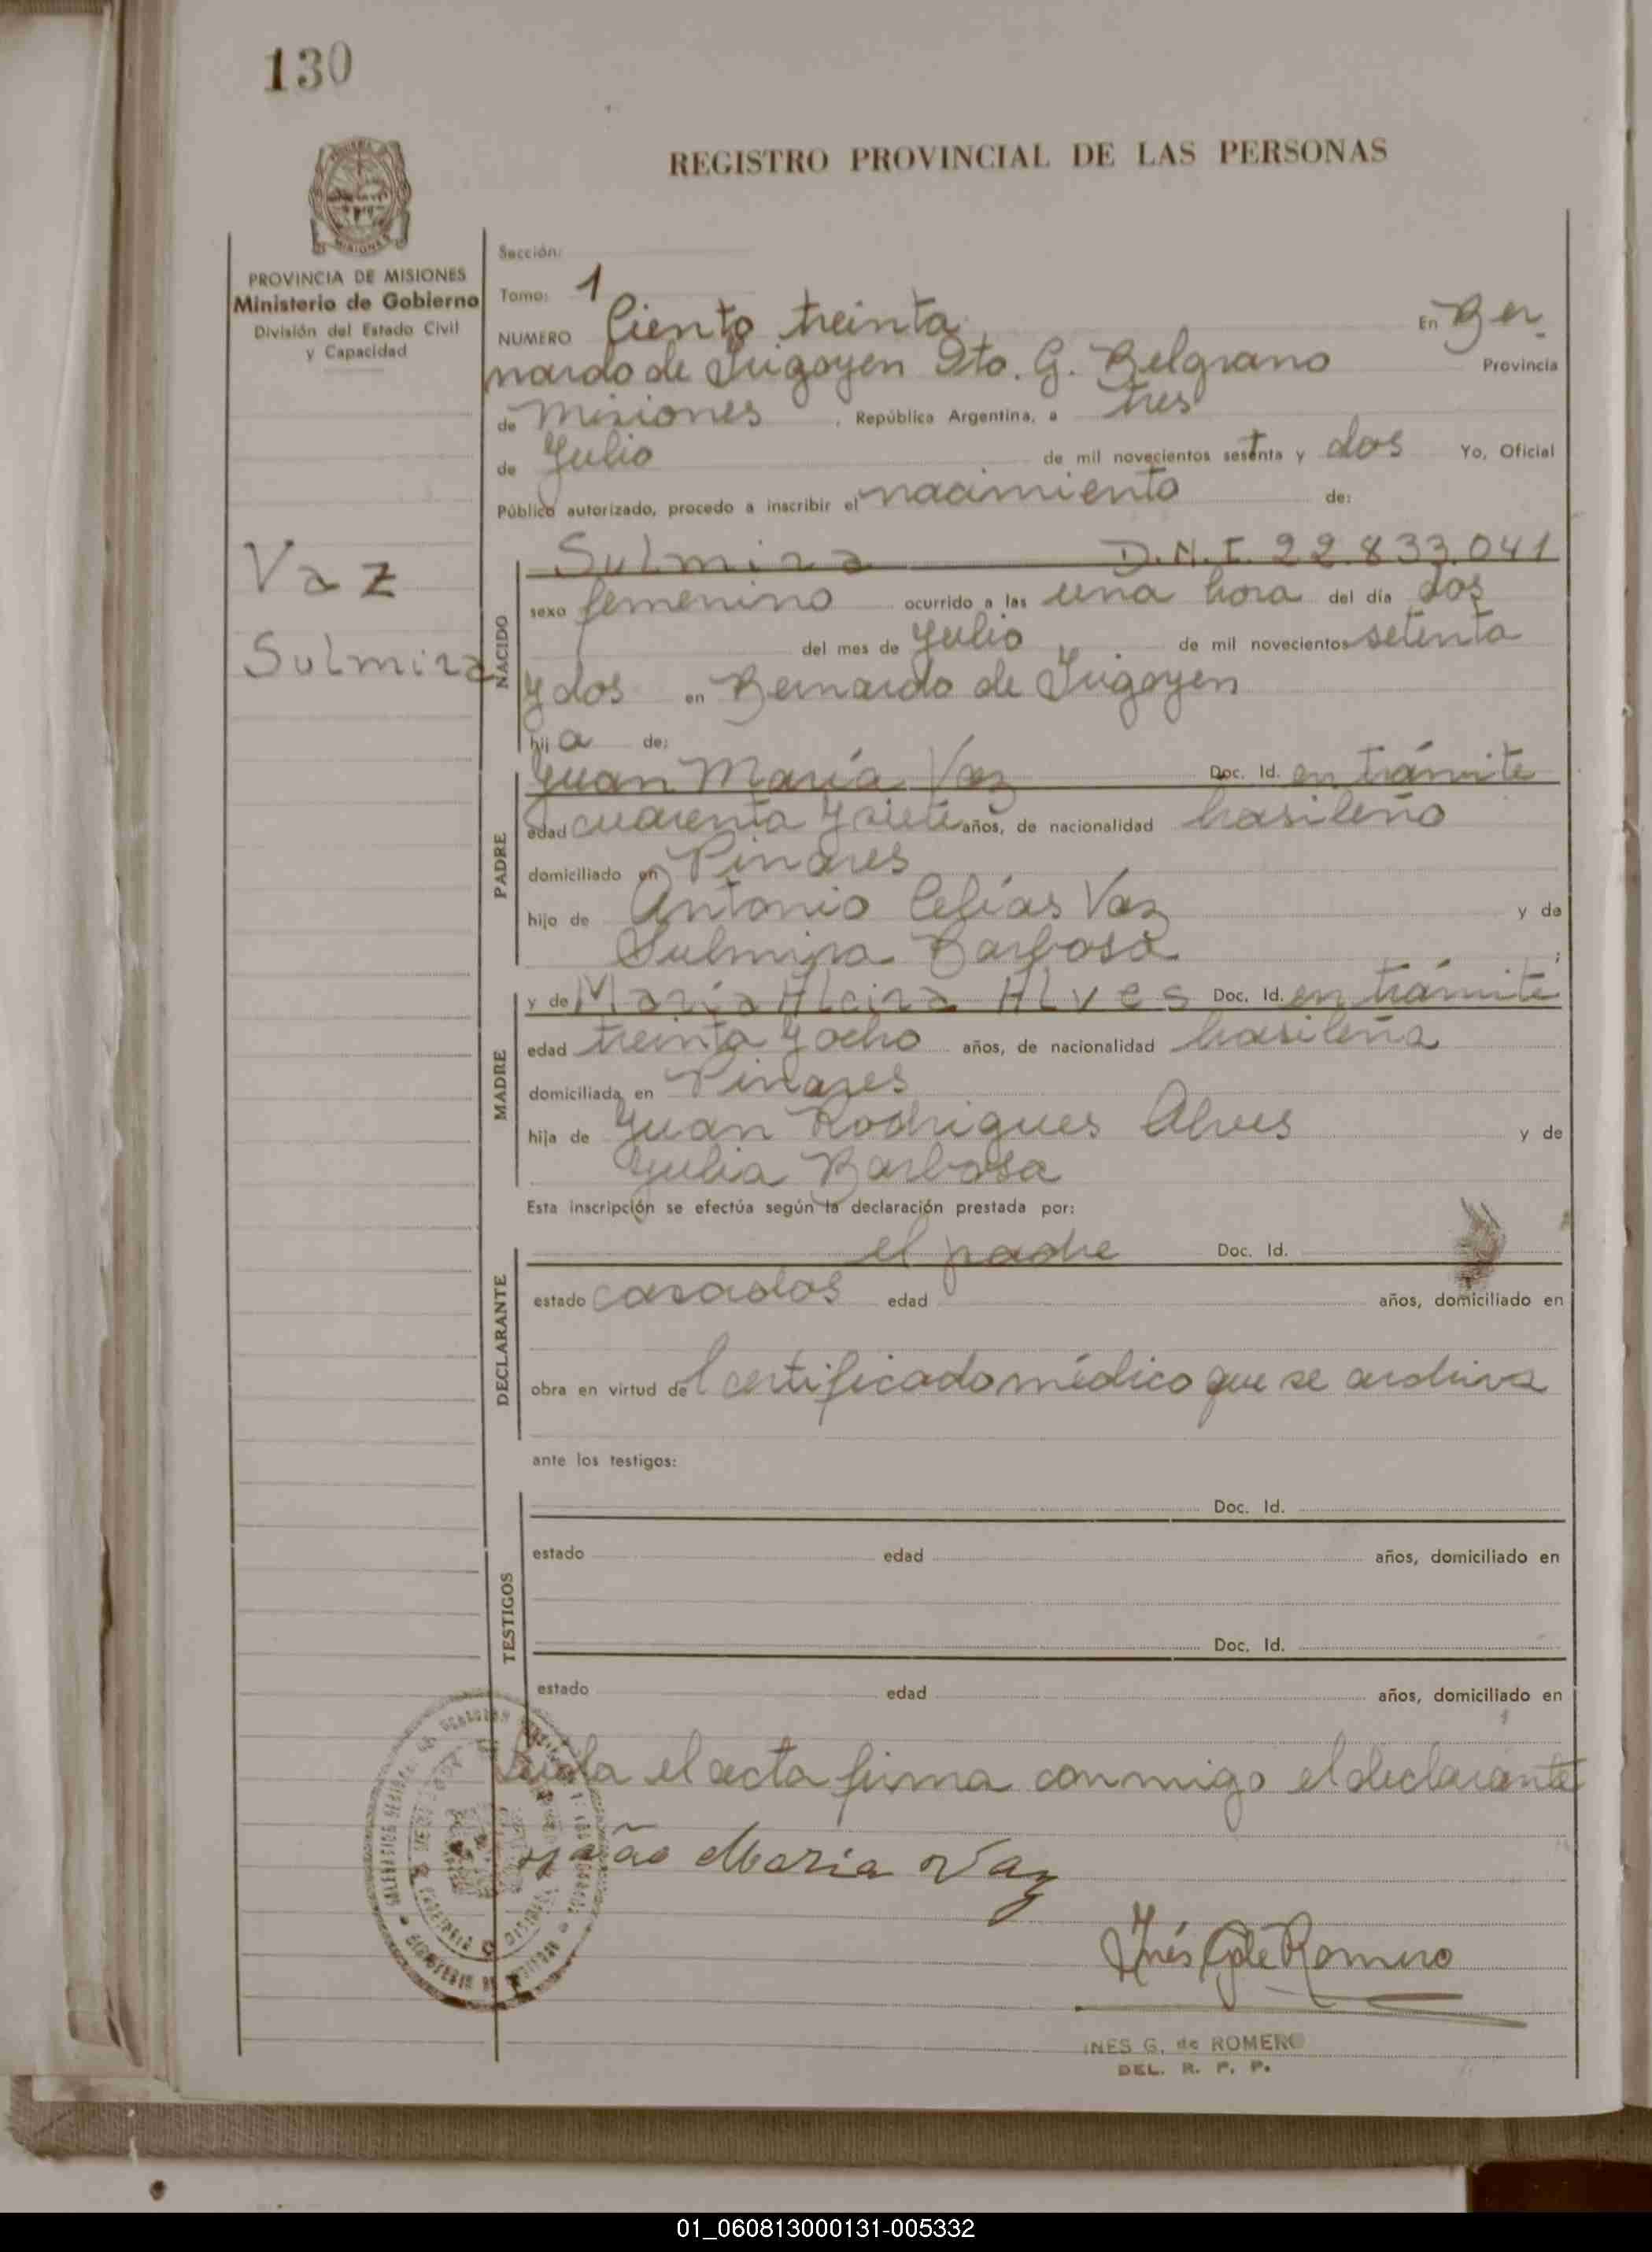 130
REGISTRO PROVINCIAL DE LAS PERSONAS
MISIONES
PROVINCIA DE MISIONES
Ministerio de Gobierno
División del Estado Civil
y Capacidad
Vaz
Sulmira
Sección:
Tomo: 1
NUMERO Ciento treinta En Ber-
nardo de Irigoyen Dto. G. Belgrano Provincia
de Misiones, República Argentina, a tres
de Julio de mil novecientos sesenta y dos Yo, Oficial
Público autorizado, procedo a inscribir el nacimiento de:
NACIDO
Sulmira D.N.I. 22.833.041
sexo femenino ocurrido a las una hora del día dos
del mes de Julio de mil novecientos setenta
y dos en Bernardo de Irigoyen
hij a de:
PADRE
Juan María Vaz Doc. Id. en trámite
edad cuarenta y siete años, de nacionalidad brasileño
domiciliado en Pinares
hijo de Antonio Vaz y de
Sulmira Barbosa ;
MADRE
y de María Alcira Alves Doc. Id. en trámite
edad treinta y ocho años, de nacionalidad brasileña
domiciliada en Pinares
hija de Juan Rodrigues Alves y de
Julia Barbosa
Esta inscripción se efectúa según la declaración prestada por:
DECLARANTE
el padre Doc. Id.
estado casados edad años, domiciliado en
obra en virtud del certificado médico que se archiva
ante los testigos:
TESTIGOS
Doc. Id.
estado edad años, domiciliado en
Doc. Id.
estado edad años, domiciliado en
Leida el acta firma conmigo el declarante
João Maria Vaz
Inés G de Romero
INES G. de ROMERO
DEL. R. P. P.
01_060813000131-005332